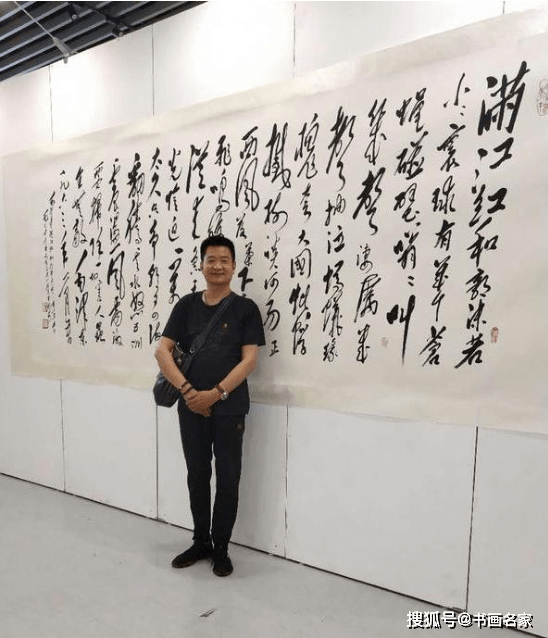 满江红和郭沫若
小小寰球有几个苍
蝇碰壁嗡嗡叫
几声凄厉几
声抽泣蚂蚁缘
槐夸大国蚍蜉
撼树谈何易正
西风落叶下
飞鸣镝
从来
光阴迫一万
太久只争朝夕四海
翻腾云水怒五洲
震荡风雷激
要扫除一切害人虫
全无敌 毛泽东
一九六三年一月九日
搜狐号@书画名家